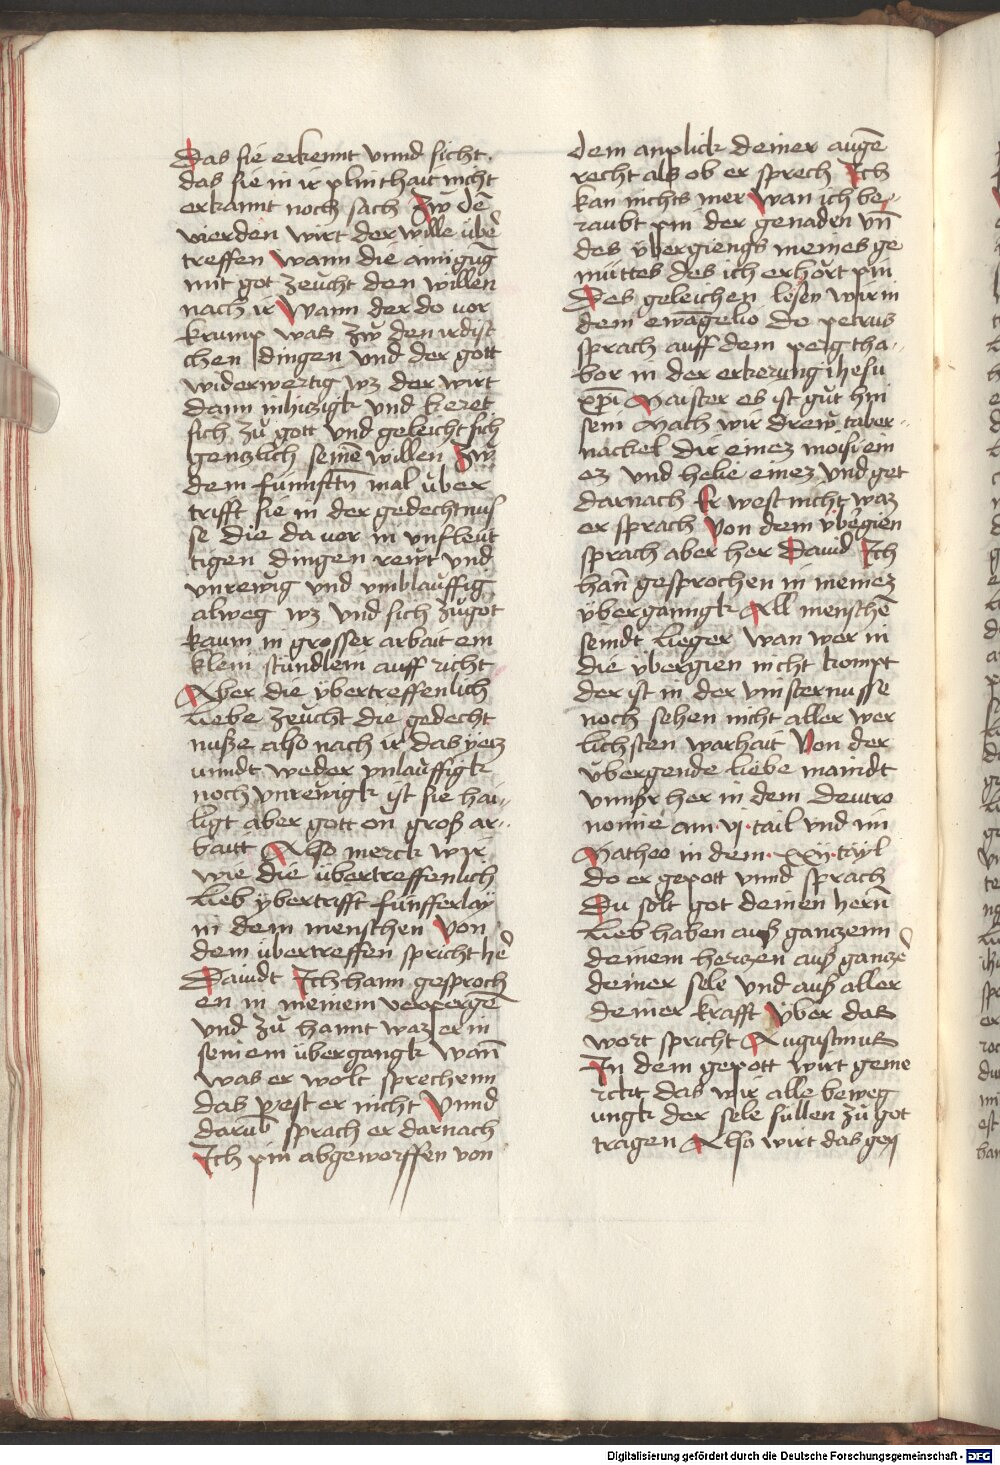 Das sie erkennt vnnd sicht.
das sie in ir plinthait nicht
erkannt noch sach Zw dē
vierden wirt der wille übe͛
treffen wann die ainigūg
mit got zeucht den willen
nach ir Wann der do vor
krump was zw den irdisc
chen dingen vnd der gott
widerwertig wz der wirt
dann inhizigk vnd keret
sich zu gott vnd geleicht sich
genzlich seinē willen Zw
dem fünnfftn̄ mal über
trifft sie in der gedechtnuſ
se die da vor in vnfleut
tigen dingen rewt vnd
vnrewig vnd vmblauffig
alweg wz vnd sich zu got
kaum in grosser arbait ein
klein stündlein auff richt
Aber die ÿbertreffenlich
Liebe zeucht die gedecht
nusze also nach ir das yetz
unndt weder vnlauffigk
noch vnrewigk ist sie hai-,
ligt aber gott on groß ar-,
baitt Also merck wir
wie die übertreffenlich
Lieb ÿbertrifft fünfferlay
in dem menschen Von
dem übertreffen spricht he͛
Dauidt Ich hann gesproch
en in meinem verpergē
vnd zu hannt waz er in
seinem übergangk wan̄
was er wolt sprechenn
das west er nicht Vnnd
darub̄ sprach er darnach
Ich pin abgeworffen von
dem anplick deiner augē
recht als ob er sprech Ich
kan nichts mer wan ich be-,
raubt pin der genaden vn̄
des übergiengs meines ge
müttes des ich erhört pin
Des geleichen lesen wir in
dem ewāgelio do petrus
sprach auff dem perg tha-,
bor in der erkerung ihesu
xp̄i Maister es ist gut hin
sein Mach wir drew taber-,
nackel dir einez moisi ein
ez vnd helie einez vnd get
darnach Er west nicht waz
er sprach Von dem ÿbergien
sprach aber her Dauid Ich
han̄ gesprochen in meinez
ÿbergangk All menschē
seindt Lieger wan wer in
die ÿbergien nicht kompt
der ist in der vinsternusse
noch sehen nicht aller wer
lichsten warhait Von der
übergende liebe maindt
vnnser her in dem deutro
nomie am .vj. tail vnd im
Matheo in dem .xxij. tayl
do er gepott vnnd sprach
Du solt got deinen hern̄
Lieb haben auß ganzenn
deinem herczen auß gancze͛
deiner sele vnd auß aller
deiner krafft Über das
wort spricht Augustinus
In dem gepott wirt geme
rckt das wir alle beweg
ungk der sele sullen zu got
tragen Also wirt das gep
Digitalisierung gefördert durch die Deutsche Forschungsgemeinschaft - DFG